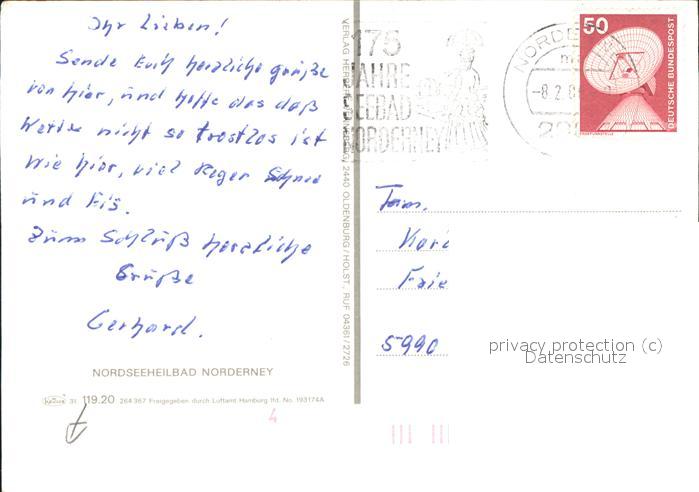 Ihr Lieben!
Sende Euch herzliche Grüße
von hier, und hoffe das daß
Wetter nicht so trostlos ist
wie hier, viel Regen Schnee
und Eis.
Zum Schluß herzliche
Grüße
Gerhard.
NORDSEEHEILBAD NORDERNEY
31 119.20 264 367 Freigegeben durch Luftamt Hamburg lfd. No. 193174A
4
2440 OLDENBURG/HOLST., RUF 04361/2726
175
JAHRE
SEEBAD
NORDERNEY
NORDE
-8.2.8
50
DEUTSCHE BUNDESPOST
Fam.
Karl
Faie
5990
privacy protection (c)
Datenschutz